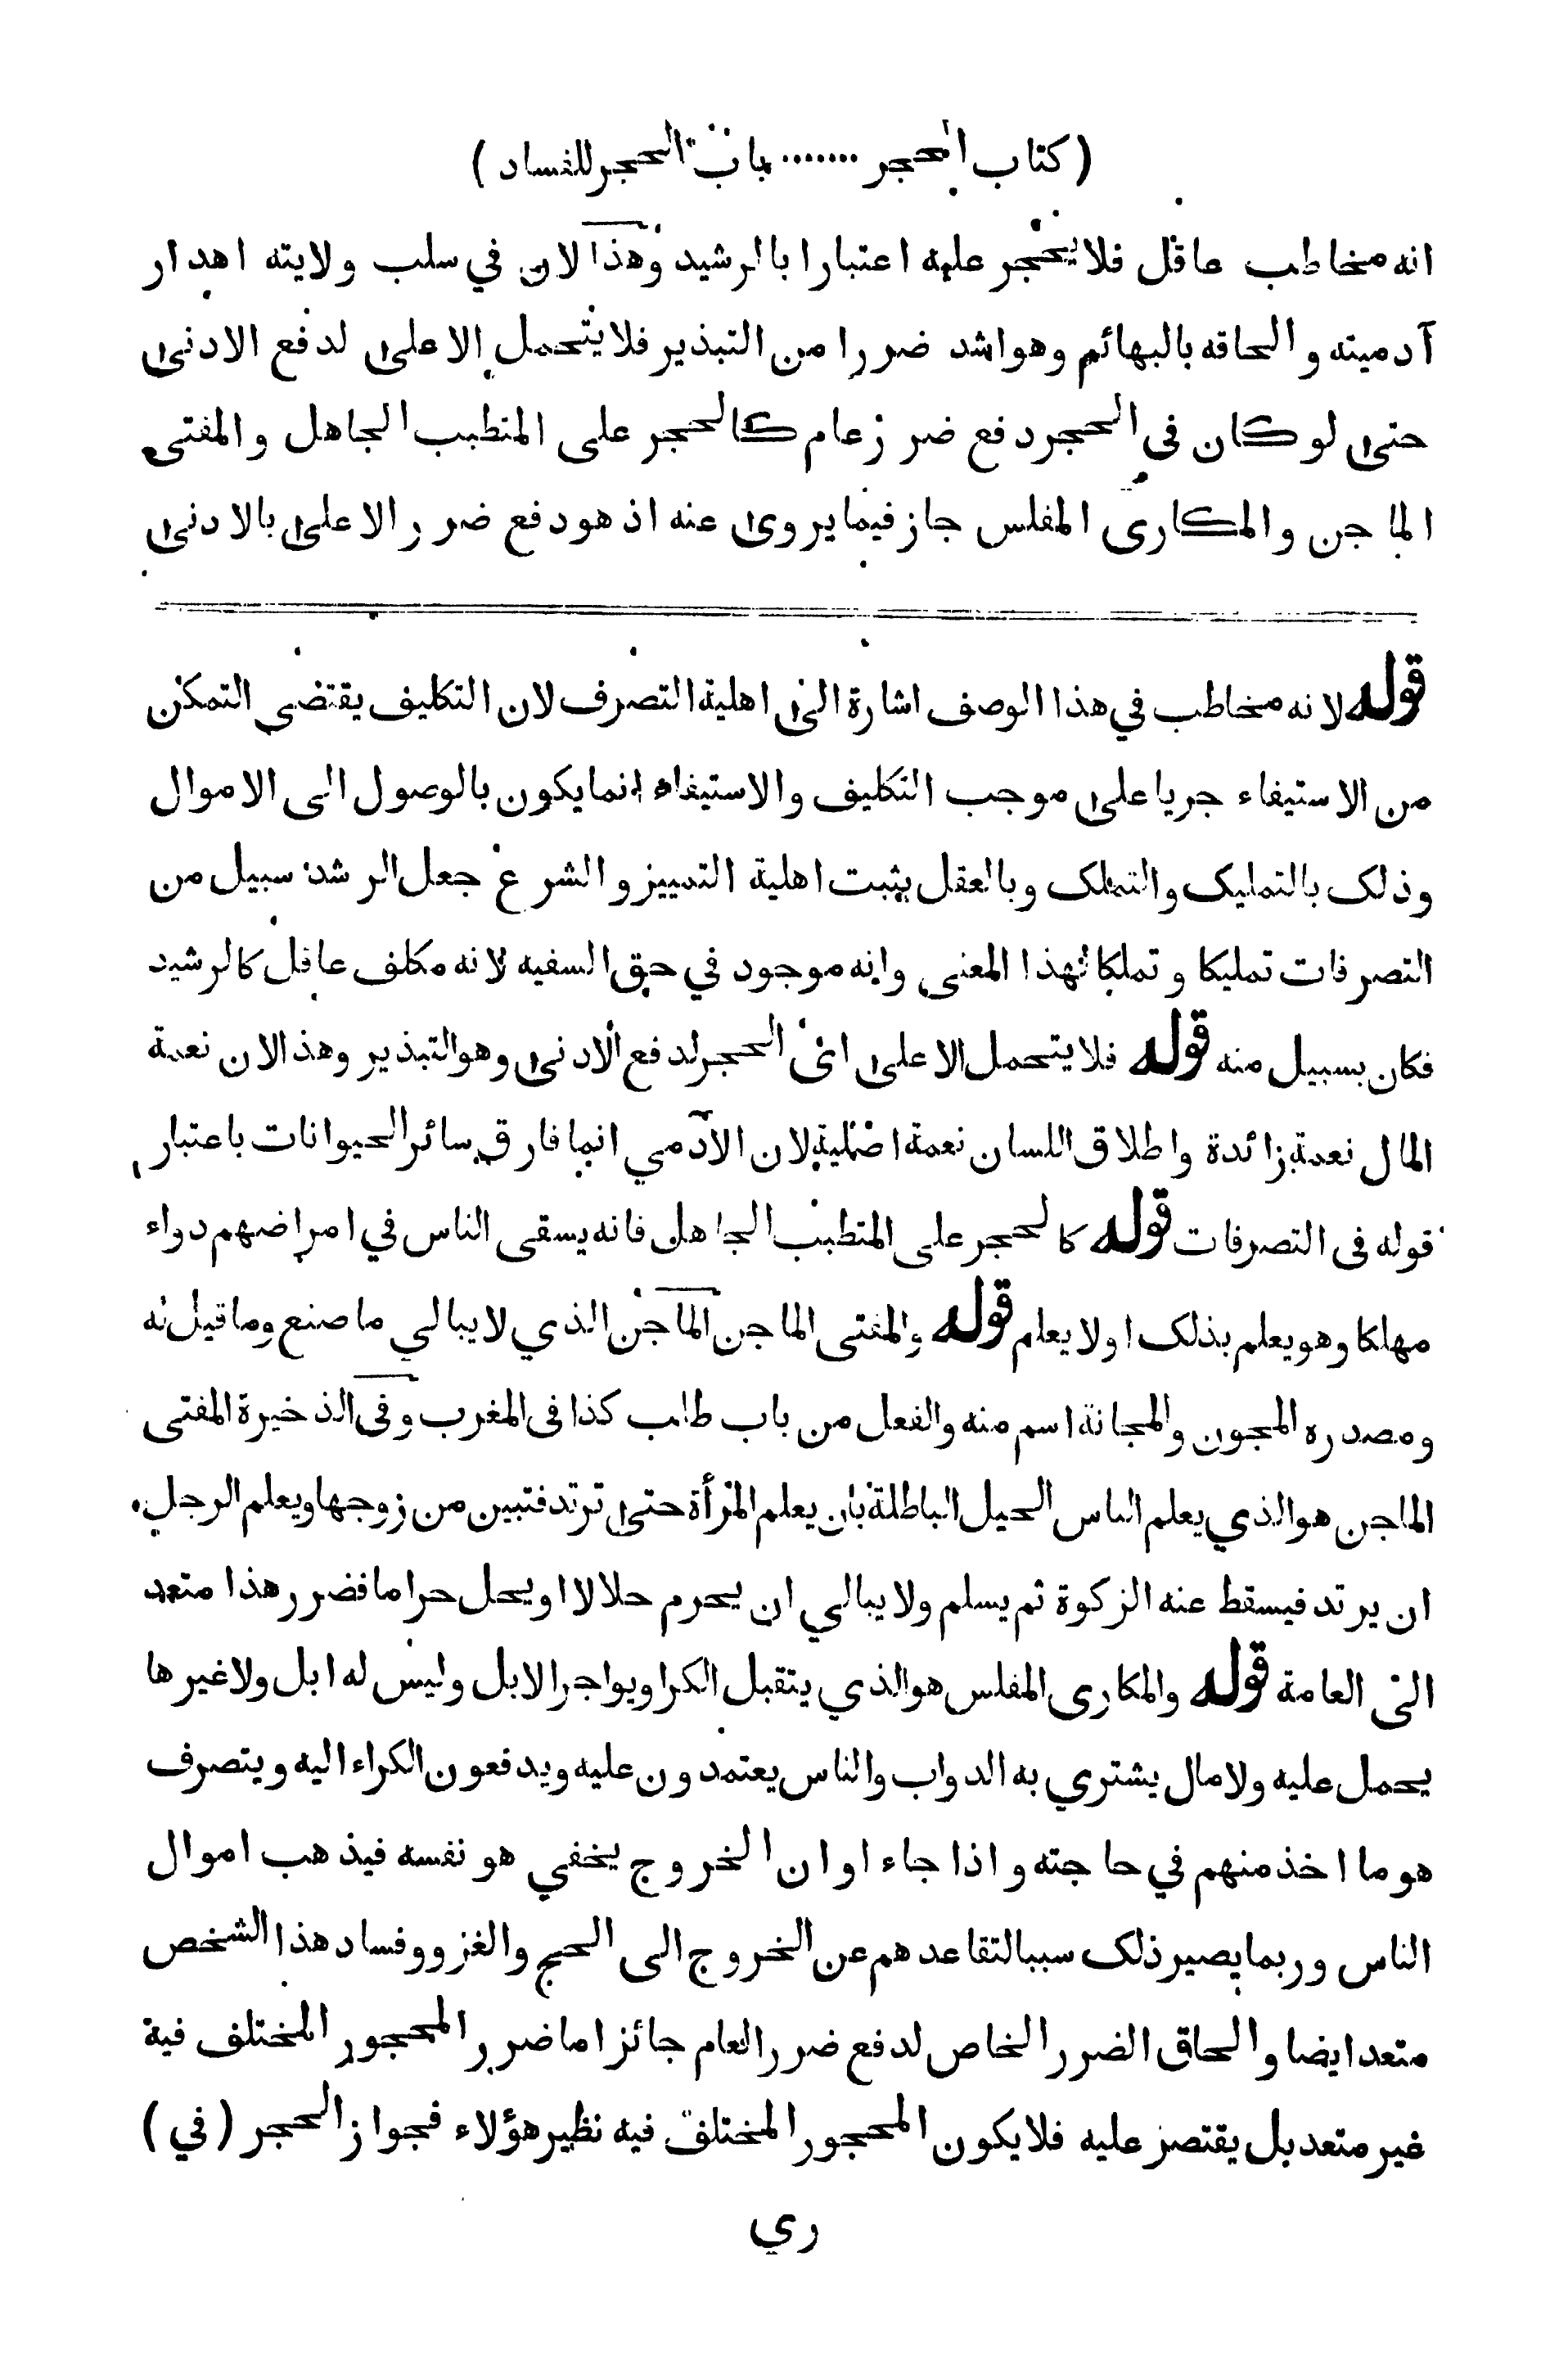 (كتاب الحجر ....... باب الحجر للفساد)
انه مخاطب عاقل فلا يحجر عليه اعتبارا بالرشيد وهذا لان في سلب ولايته اهدار
آدميته والحاقه بالبهائم وهو اشد ضررا من التبذير فلا يتحمل الاعلى لدفع الادنى
حتى لو كان في الحجر دفع ضرر عام كالحجر على المتطبب الجاهل والمفتى
الماجن والمكارى المفلس جاز فيما يروى عنه اذ هو دفع ضرر الاعلى بالادنى
قوله لانه مخاطب في هذا الوصف اشارة الى اهلية التصرف لان التكليف يقتضى التمكن
من الاستيفاء جريا على موجب التكليف والاستيفاء انما يكون بالوصول الى الاموال
وذلك بالتمليك والتملك وبالعقل يثبت اهلية التمييز والشرع جعل الرشد سبيل من
التصرفات تمليكا وتملكا لهذا المعنى وانه موجود في حق السفيه لانه مكلف عاقل كالرشيد
فكان بسبيل منه قوله فلا يتحمل الاعلى اى الحجر لدفع الادنى وهو التبذير وهذا لان نعمة
المال نعمة زائدة واطلاق اللسان نعمة اصلية لان الآدمي انما فارق سائر الحيوانات باعتبار
قوله في التصرفات قوله كالحجر على المتطبب الجاهل فانه يسقى الناس في امراضهم دواء
مهلكا وهو يعلم بذلك اولا يعلم قوله والمفتى الماجن الماجن الذي لا يبالي ما صنع وما قيل له
ومصدره المجون والمجانة اسم منه والفعل من باب طلب كذا في المغرب وفى الذخيرة المفتى
الماجن هو الذي يعلم الناس الحيل الباطلة بان يعلم المرأة حتى ترتد فتبين من زوجها ويعلم الرجل
ان يرتد فيسقط عنه الزكوة ثم يسلم ولا يبالي ان يحرم حلالا او يحل حراما فضرر هذا متعد
الى العامة قوله والمكارى المفلس هو الذي يتقبل الكرا ويواجر الابل وليس له ابل ولا غيرها
يحمل عليه ولا مال يشتري به الدواب والناس يعتمدون عليه ويدفعون الكراء اليه ويتصرف
هو ما اخذ منهم في حاجته واذا جاء اوان الخروج يخفي هو نفسه فيذهب اموال
الناس وربما يصير ذلك سببا لتقاعدهم عن الخروج الى الحج والغزو وفساد هذا الشخص
متعد ايضا والحاق الضرر الخاص لدفع ضرر العام جائز اما ضرر المحجور المختلف فية
غير متعد بل يقتصر عليه فلا يكون المحجور المختلف فيه نظير هؤلاء فجواز الحجر (في)
ري